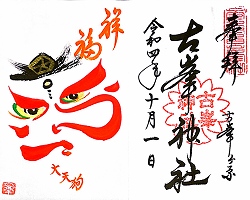 奉拝
古峯ヶ原
古峯神社
令和四年十月一日
祥福
大天狗